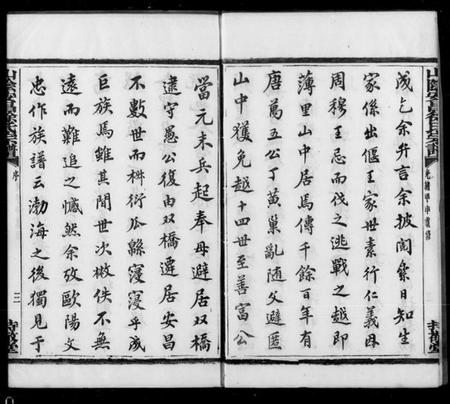 山陰安昌徐氏宗譜
光緒甲申重修
成也余弁言余披閱象日知生
家係出偃王家世素行仁義因
周穆王忌而伐之逃戰之越即
薄里山中居焉傳千餘百年有
唐萬五公丁黃巢亂隨父避匿
山中獲免越十四世至善富公
當元末兵起奉母避居双橋
逮守愚公復由双橋遷居安昌
不數世而椒衍瓜緜寖寖乎成
巨族焉雖其間世次散佚不無
遠而難追之憾然余攷歐陽文
忠作族譜云渤海之後獨見于
山陰安昌徐氏宗譜
序
三